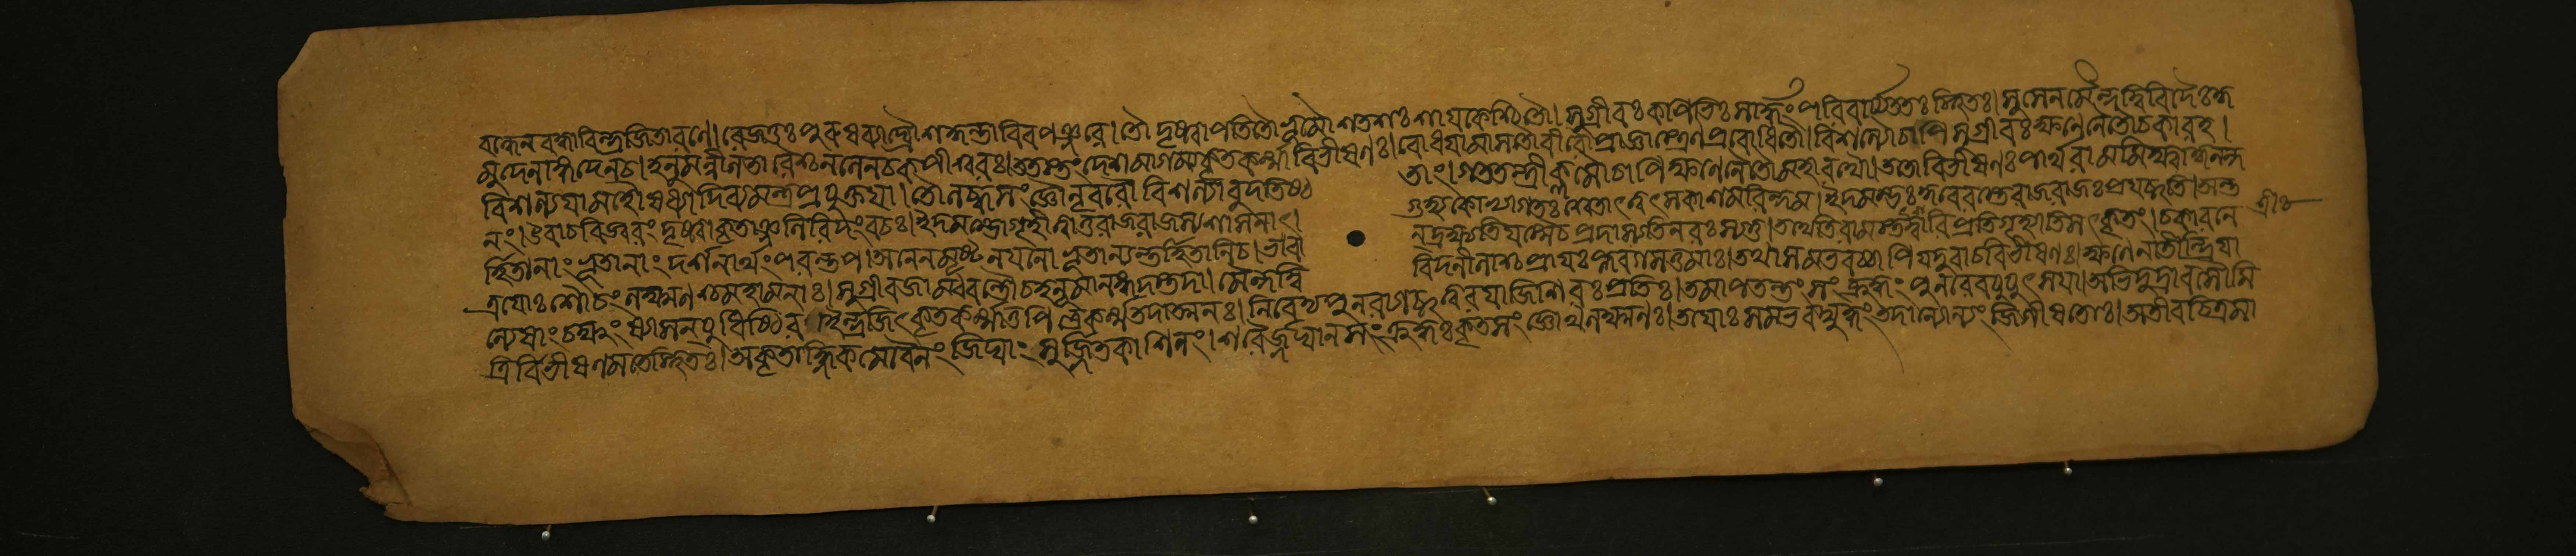 বদ্ধেন বদ্ধাবিন্দ্রজিতারণে। রেজতুঃ পুরুষব্যাঘ্রৌ শকুন্তাবিব পঞ্জরে। তৌ দৃষ্ট্বা পতিতৌ ভূমৌ শতশঃ শায়কৈশ্চিতৌ। সুগ্রীবঃ কপিভিঃ সার্দ্ধং পরিবার্য্য ততঃ স্থিতঃ। সুসেনমৈন্দদ্বিবিদৈঃ কু
মুদেনাঙ্গদেন চ। হনুমন্নীলতারৈশ্চ নলেন চ কপীশ্বরঃ। ততস্তং দেশমাগম্য কৃতকর্ম্মা বিভীষণঃ। বোধয়ামাস তৌ বীরৌ প্রজ্ঞাস্ত্রেণ প্রবোধিতৌ। বিশল্যৌ চাপি সুগ্রীবঃ ক্ষণেনৈতৌ চকার হ।
বিশল্যয়া মহৌষধ্যা দিব্যমন্ত্রপ্রযুক্তয়া। তৌ লব্ধসংজ্ঞৌ নৃবরৌ বিশল্যাবুদতিষ্ঠ তাং। গততন্দ্রীক্লমৌ চাপি ক্ষণেনৈতৌ মহারথৌ। ততো বিভীষণঃ পার্থ রামমিক্ষ্বাকুনন্দ
নং। উবাচ বিজ্বরং দৃষ্ট্বা কৃতাঞ্জলিরিদং বচঃ। ইদমম্ভো গৃহীত্বা তু রাজরাজস্য শাসনাৎ। গুহ্যকোভ্যাগতঃ শ্বেতাৎ ত্বৎসকাশমরিন্দম। ইদমম্ভঃ কুবেরস্তে রাজরাজঃ প্রযচ্ছতি। অন্ত
র্হিতানাং ভূতানাং দর্শনার্থং পরন্তপ। অনেন মৃষ্টনয়নো ভূতান্যন্তর্হিতানি চ। ভবা ন্দ্রক্ষ্যতি যস্মৈ চ প্রদাস্যতি নরঃ স তু। তথেতি রামস্তদ্বারি প্রতিগৃহ্যাভিসৎকৃতং। চকার নে
ত্রয়োঃ শৌচং লক্ষ্মণশ্চ মহামনাঃ। সুগ্রীবজাম্ববন্তৌ চ হনুমানঙ্গদস্তদা। মৈন্দদ্বি বিদনীলাশ্চ প্রায়ঃ প্লবগসত্তমাঃ। তথা সমভবচ্চাপি যদুবাচ বিভীষণঃ। ক্ষণেনাতীন্দ্রিয়া
ন্যেষাং চক্ষুংষ্যাসন্যুধিষ্ঠির। ইন্দ্রজিৎ কৃতকর্ম্মা তু পিত্রে কর্ম্ম তদাত্মনঃ। নিবেদ্য পুনরাগচ্ছত্ত্বরয়াজিশিরঃ প্রতি। তমাপতন্তং সংক্রুদ্ধং পুনরেব যুযুৎসয়া। অভিদুদ্রাব সৌমি
ত্রির্বিভীষণমতে স্থিতঃ। অকৃতাহ্নিকমেবৈনং জিঘাংসুর্জিতকাশিনং। শরৈর্জঘান সংক্রুদ্ধঃ কৃতসংজ্ঞোথ লক্ষ্মণঃ। তয়োঃ সমভবদ্যুদ্ধং তদান্যোন্যং জিগীষতোঃ। অতীব চিত্রমা